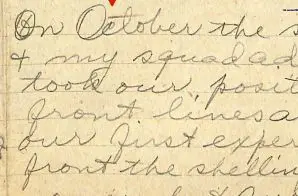 On October the s
& my squad ad
took our posit
front lines a
our first exper
front the shellin